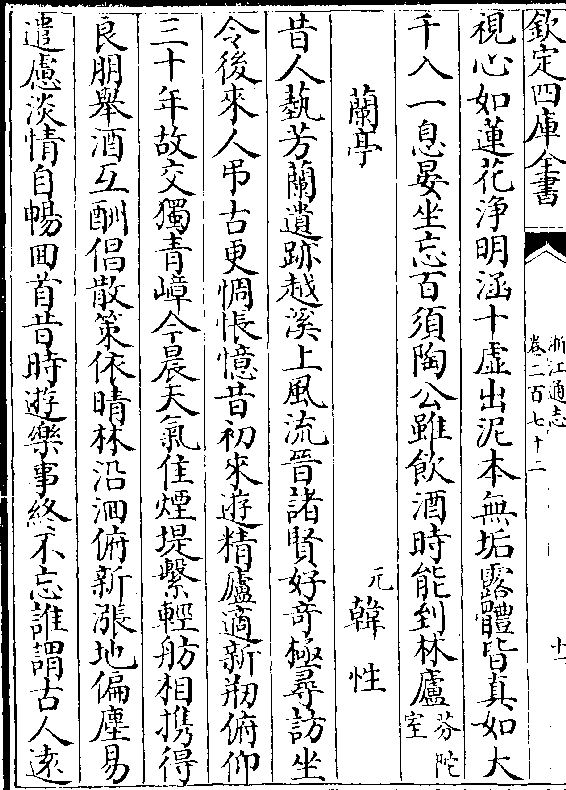 欽定四庫全書
浙江通志
卷二百七十二
十一
視心如蓮花浄明涵十虚出泥本無垢露體皆真如大
千入一息晏坐忘百須陶公雖飲酒時能到林廬芬陀室
蘭亭
元韓性
昔人藝芳蘭遺跡越溪上風流晉諸賢好奇極尋訪坐
令後來人弔古更惆悵憶昔初來遊精廬適新剏俯仰
三十年故交獨青嶂今晨天氣佳煙堤繫輕舫相攜得
良朋舉酒互酬倡散策依晴林沿洄俯新漲地偏塵易
遣慮淡情自暢回首昔時遊樂事終不忘誰謂古人遠